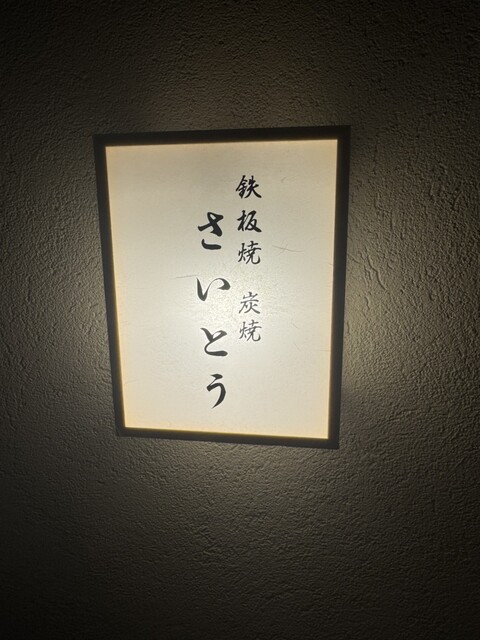 鉄板焼 炭焼
さいとう